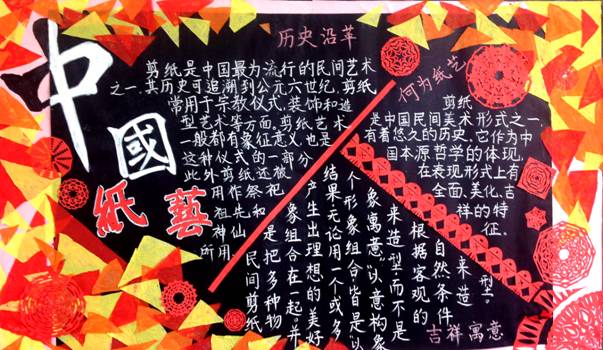 中國
紙藝
历史沿革
剪纸是中国最为流行的民间艺术
之一,其历史可追溯到公元六世纪,剪纸
常用于宗教仪式,装饰和造
型艺术等方面.剪纸艺术
一般都有象征意义,也是
这种仪式的一部分
此外剪纸还被
用作祭祀
祖先和
神仙
所用.
何为纸艺
剪纸
是中国民间美术形式之一,
有着悠久的历史,它作为中
国本源哲学的体现,
在表现形式上有
全面、美化、吉
祥的特
征。
吉祥寓意
民间剪纸
是把多种物
象组合在一起,并
产生出理想的美好
结果.无论用一个或多
个形象组合,皆是以
象寓意、以意构象
来造型,而不是
根据客观的
自然条件
来造
型。